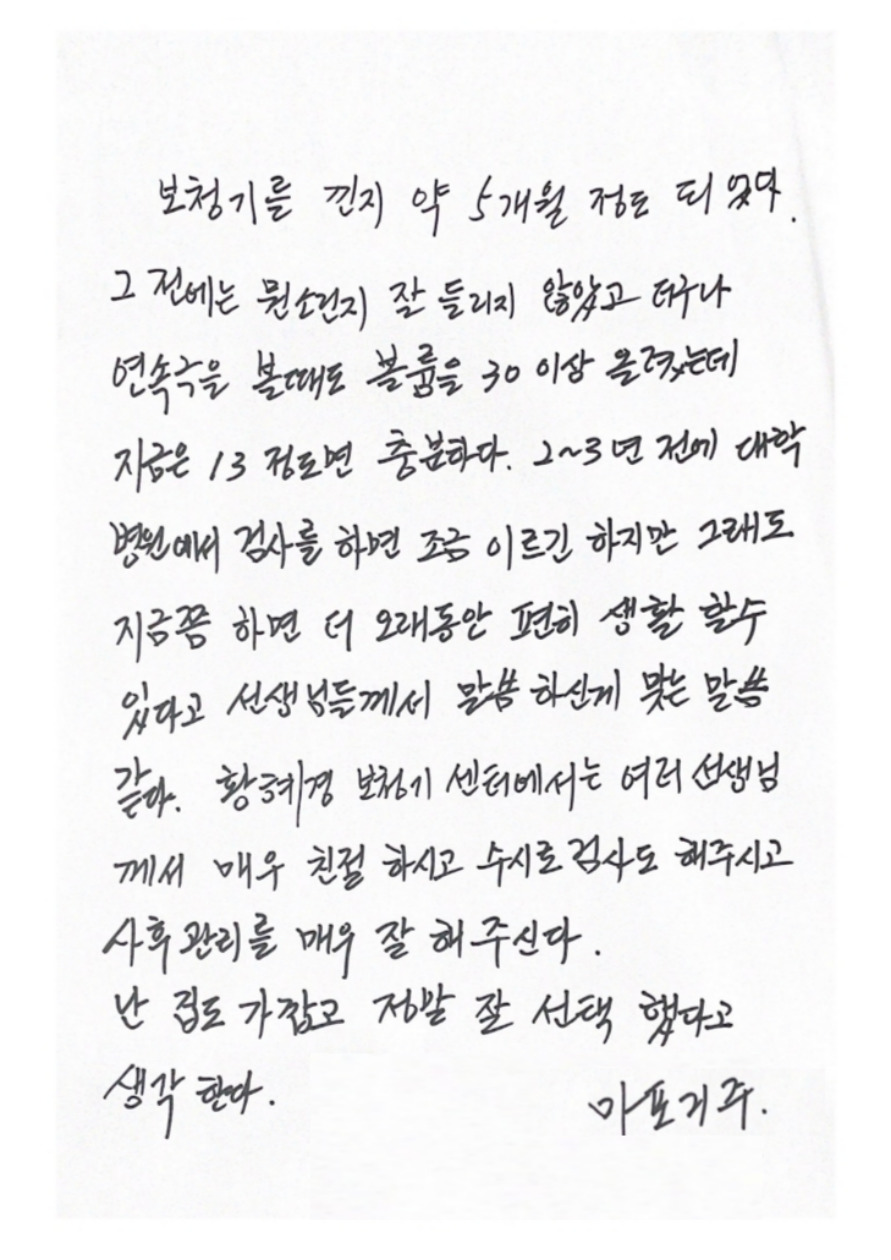 보청기를 낀지 약 5개월 정도 되었다.
그 전에는 뭔소린지 잘 들리지 않았고 더구나
연속극을 볼때도 볼륨을 30 이상 올렸는데
지금은 13 정도면 충분하다. 2~3년 전에 대학
병원에서 검사를 하면 조금 이르긴 하지만 그래도
지금쯤 하면 더 오래동안 편히 생활 할수
있다고 선생님들께서 말씀 하신게 맞는 말씀
같다. 황혜경 보청기 센터에서는 여러 선생님
께서 매우 친절 하시고 수시로 검사도 해주시고
사후관리를 매우 잘 해 주신다.
난 집도 가깝고 정말 잘 선택 했다고
생각 한다.
마포거주.